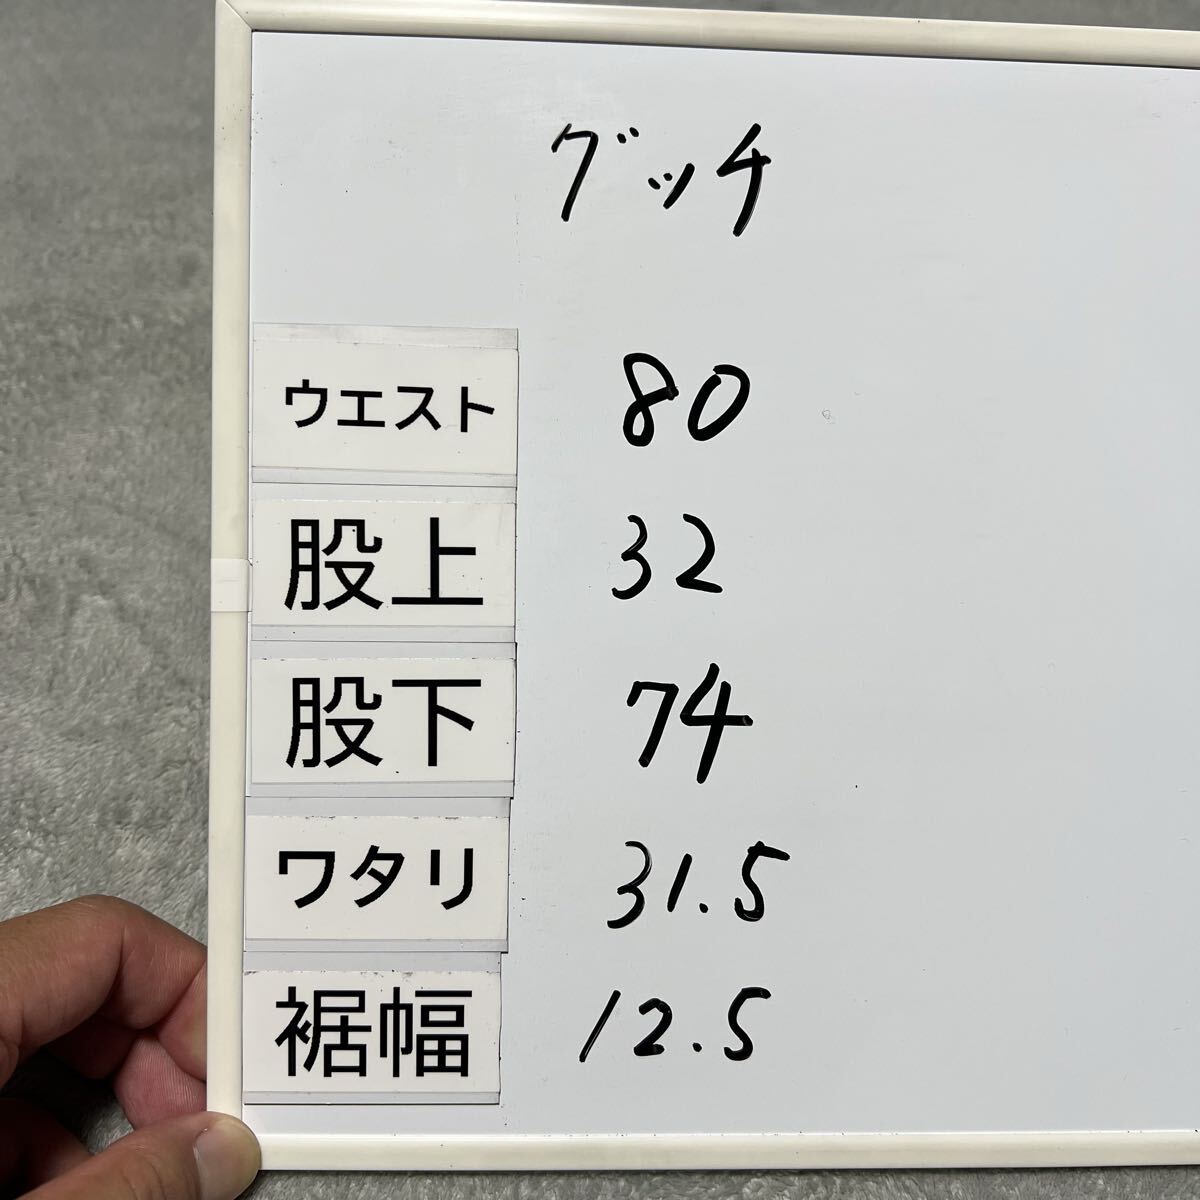 グッチ
ウエスト 80
股上 32
股下 74
ワタリ 31.5
裾幅 12.5